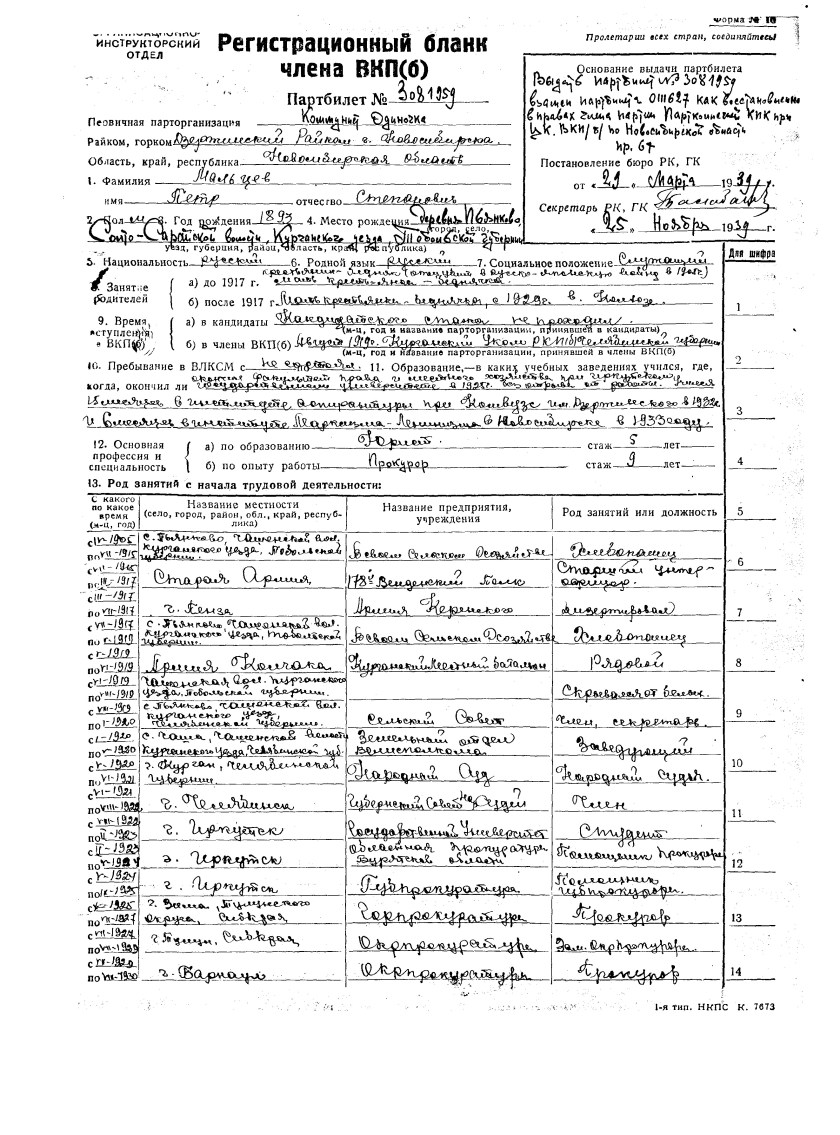 Форма № 10
ИНСТРУКТОРСКИЙ
ОТДЕЛ
Пролетарии всех стран, соединяйтесь!
Регистрационный бланк
члена ВКП(б)
Партбилет № 3081959
Основание выдачи партбилета
Выдать партбилет № 3081959
взамен партбилета 0111627 как восстановленно
в правах члена партии КПК при
ЦК. ВКП/б/ по Новосибирской область
пр. 67
Постановление бюро РК, ГК
от „29 „ Марта 1939 г.
Секретарь РК, ГК
„25 „ Ноября 1939 г.
Первичная парторганизация Коммунист Одиночка
Райком, горком Дзержинский Райком г. Новосибирска.
Область, край, республика Новосибирская область
1. Фамилия Мальцев
имя Петр отчество Степанович
2. Пол м 3. Год рождения 1893 4. Место рождения Деревня Пьянково,
город, село,
волости, Курганского уезда, Тобольской губернии
уезд, губерния, район, область, край, республика)
5. Национальность русский 6. Родной язык русский 7. Социальное положение Служащий
Для шифра
8. Занятие
родителей
а) до 1917 г.
мать крестьянка - беднячка.
б) после 1917 г. Мать крестьянка - беднячка, с 1929г. в Колхозе.
1
9. Время
вступления
в ВКП(б)
а) в кандидаты Кандидатского стажа не проходил.
(м-ц, год и название парторганизации, принявшей в кандидаты)
б) в члены ВКП(б) Август 1919г. Курганский Уком РКП(б) Челябинской губернии
(м-ц, год и название парторганизации, принявшей в члены ВКП(б)
2
10. Пребывание в ВЛКСМ с не состоял. 11. Образование,—в каких учебных заведениях учился, где,
окончил факультет права и местного хозяйства при Иркутском
когда, окончил ли государственном университете в 1925г. без отрыва от работы. Учился
в институте аспирантуры при Комвузе им. Дзержинского в 1932г
и 6 месяцев в институте Марксизма-Ленинизма в Новосибирске в 1933 году.
3
12. Основная
профессия и
специальность
а) по образованию Юрист. стаж 5 лет
б) по опыту работы Прокурор стаж 9 лет
4
13. Род занятий с начала трудовой деятельности:
С какого
по какое
время
(м-ц, год)
Название местности
(село, город, район, обл., край, респуб-
лика)
Название предприятия,
учреждения
Род занятий или должность
5
1905
с. Пьянково, Чашенской вол.
Курганского уезда, Тобольской
губернии.
по VII-1915
В своем Сельском Хозяйстве
Хлебопашец
6
с VII-1915
по III-1917
Старая Армия
178й Венденский Полк
Старший унтер-
офицер.
с III-1917
по VII-1917
г. Пенза
Армия Керенского
дизертировал
7
с VII-1917
с. Пьянково Чашенской вол.
Курганского уезда, Тобольской
губернии.
1919
В своем Сельском Хозяйстве
Хлебопашец
1919
по VI-1919
Армия Колчака
Курганский Местный батальон
Рядовой
8
с VI-1919
по VIII-1919
Чашенская вол. Курганского
уезда, Тобольской губернии.
Скрывался от белых.
с VIII-1919
по I-1920
с. Пьянково, Чашенской вол.
Курганского уезда,
Челябинской губернии.
Сельский Совет
Член, секретарь.
9
с I-1920
по V-1920
с. Чаша, Чашенской волости
Курганского уезда, Челябинской губ.
Земельный отдел
Волисполкома
Заведующий
с V-1920
по VI-1921
г. Курган, Челябинской
губернии.
Народный Суд
Народный Судья.
10
с VI-1921
по VIII-1922
г. Челябинск
Губернский Совет Нар Судей
Член
11
с VIII-1922
по II-1923
г. Иркутск
Государственный Университет
Студент
с II-1923
по V-1924
г. Иркутск
Областная прокуратура
Бурятской области
Помощник прокурора
12
с V-1924
по IX-1925
г. Иркутск
Губпрокуратура
Помощник
губпрокурора.
с X-1925
по VII-1927
г. Зима, Тулунского
округа, Сибкрая
Горпрокуратура
Прокурор
13
с VII-1927
по VII-1929
г. Тулун, Сибкрая
Окрпрокуратура
Зам. Окрпрокурора.
1929
1930
г. Барнаул
Окрпрокуратура
Прокурор
14
1-я тип. НКПС К. 7673